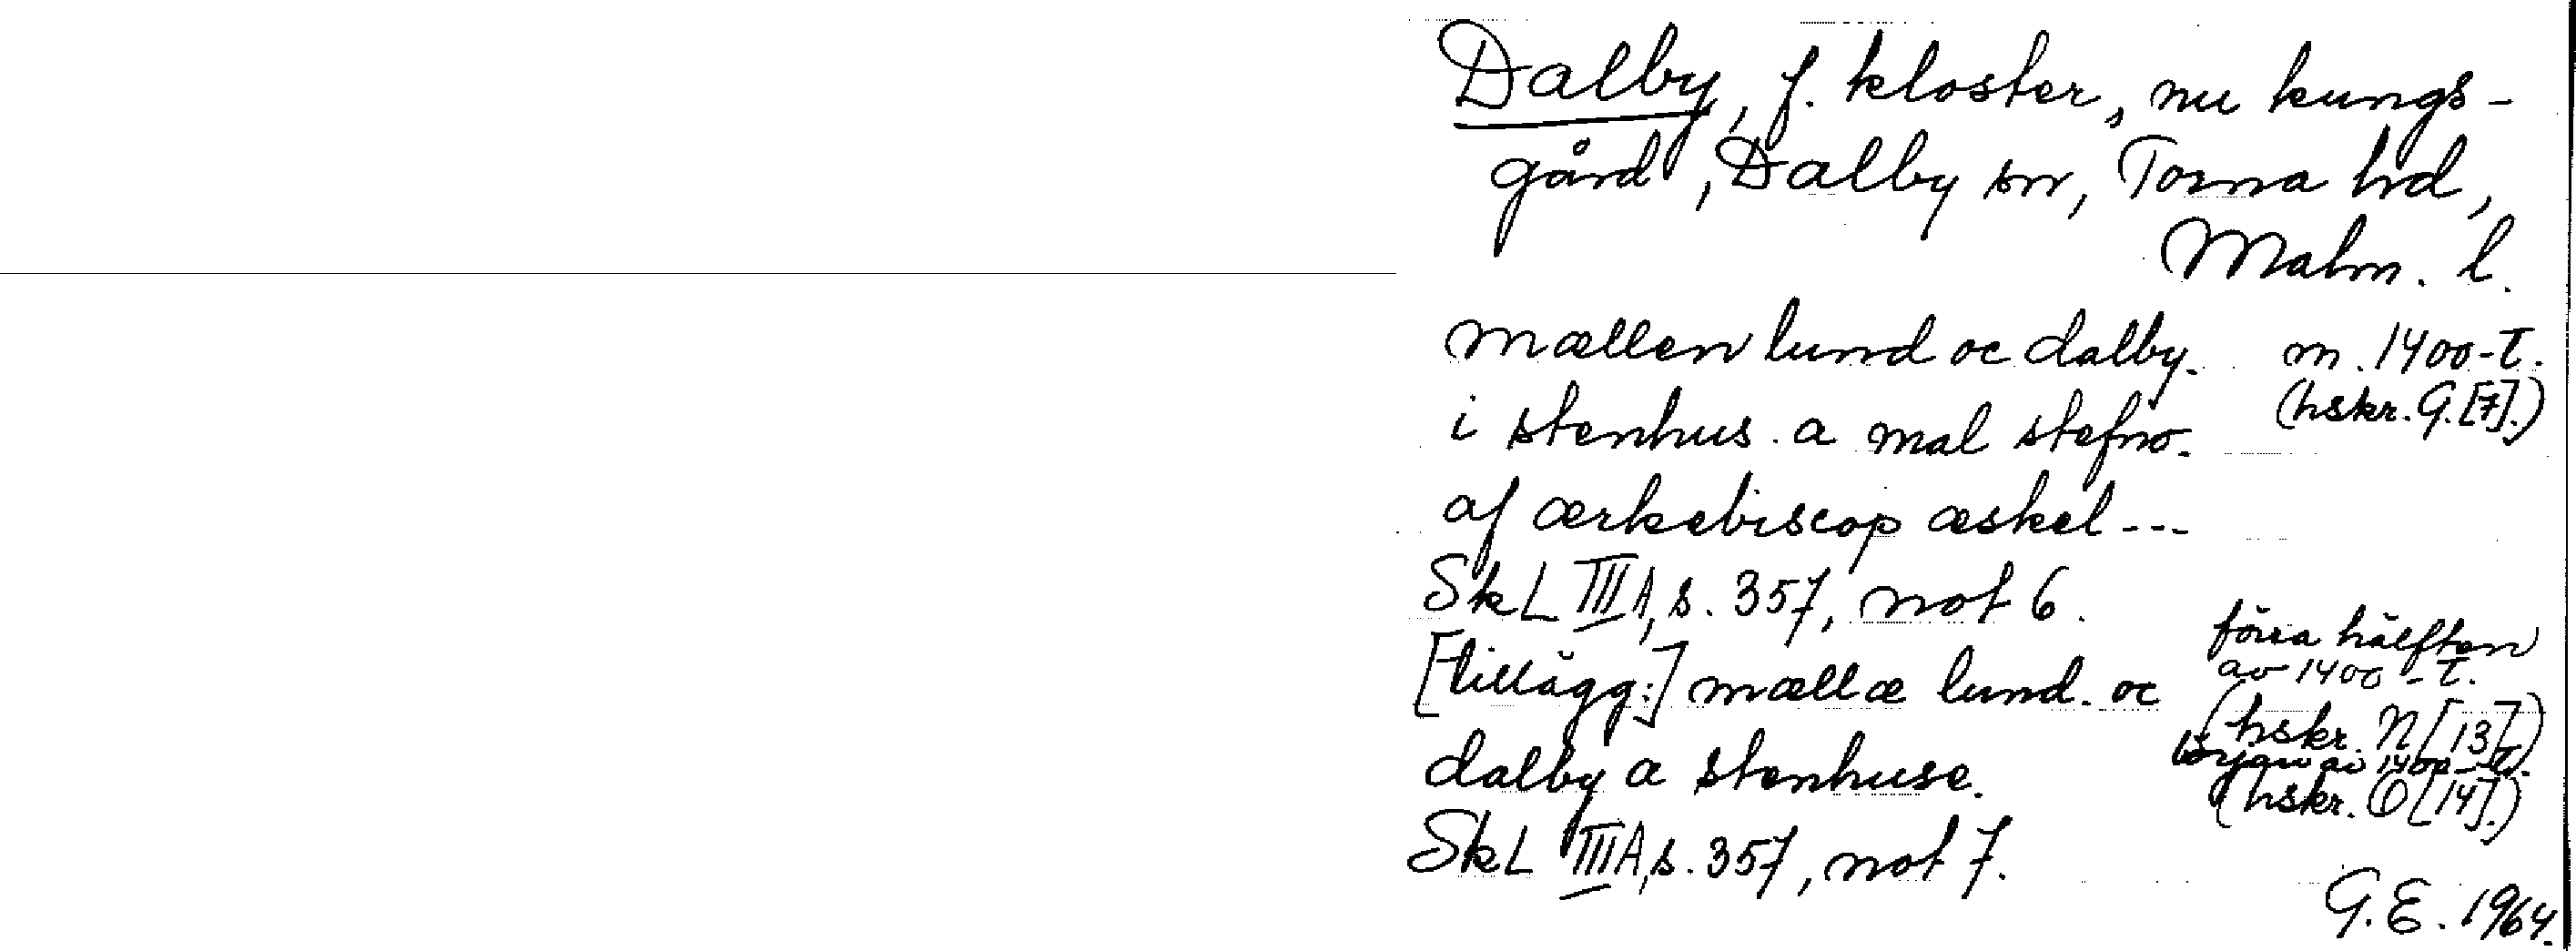 Dalby, f. kloster, nu kungs-
gård, Dalby sn, Torna hd,
Malm. l.
mællen lund oc dalby. m. 1400-t.
i stenhus. a mal stefno. (hskr. G.[7].)
af ærkebiscop æskel ---
SkL III A, s. 357, not 6.
förra hälften
av 1400-t.
[tillägg:] mællæ lund. oc
(hskr. N [13].)
början av 1400-t.
dalby a stenhuse.
(hskr. O [14].)
SkL III A, s. 357, not 7.
G.E. 1964.